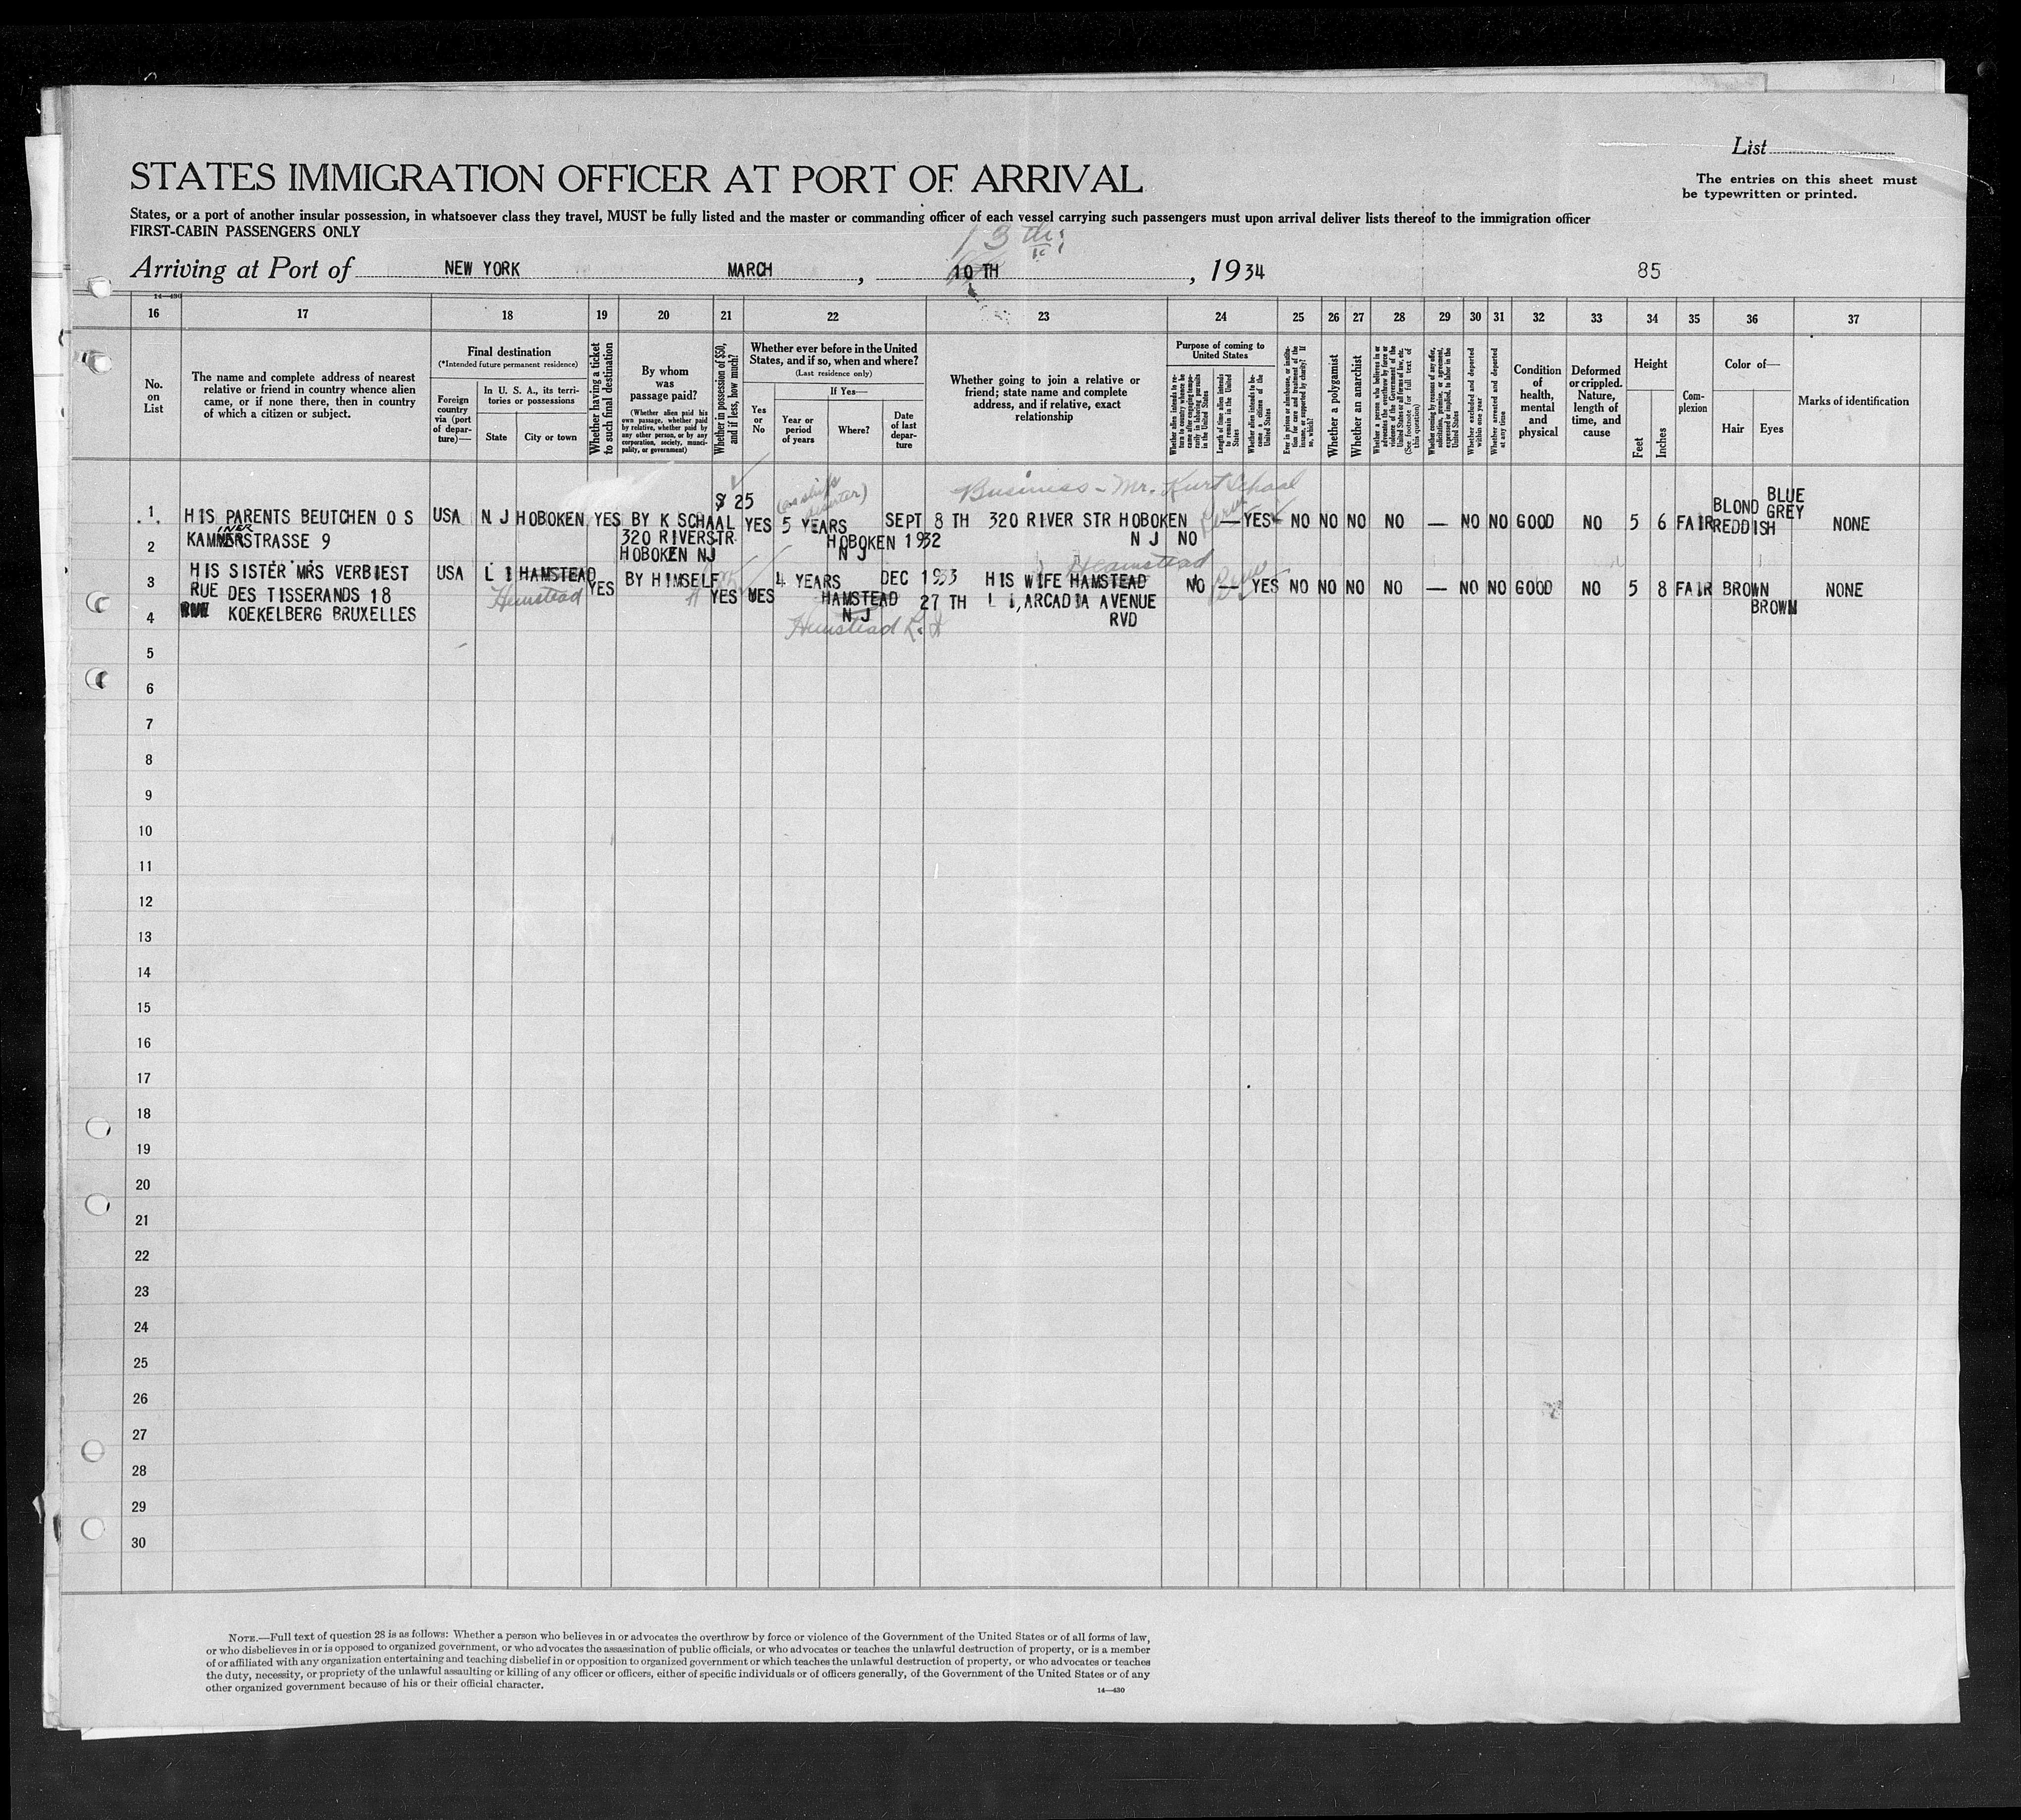 List
The entries on this sheet must
be typewritten or printed.
STATES IMMIGRATION OFFICER AT PORT OF ARRIVAL
States, or a port of another insular possession, in whatsoever class they travel, MUST be fully listed and the master or commanding officer of each vessel carrying such passengers must upon arrival deliver lists thereof to the immigration officer
FIRST-CABIN PASSENGERS ONLY
13th
Arriving at Port of NEW YORK MARCH, 10 TH, 1934 85
14—430
16 17 18 19 20 21 22 23 24 25 26 27 28 29 30 31 32 33 34 35 36 37
No. on List
The name and complete address of nearest
relative or friend in country whence alien
came, or if none there, then in country
of which a citizen or subject.
Final destination
(*Intended future permanent residence)
Foreign country via (port of departure)—
In U. S. A., its territories or possessions
State
City or town
Whether having a ticket to such final destination
By whom was passage paid?
(Whether alien paid his own passage, whether paid by relative, whether paid by any other person, or by any corporation, society, municipality, or government)
Whether in possession of $50, and if less, how much?
Whether ever before in the United
States, and if so, when and where?
(Last residence only)
Yes or No
If Yes—
Year or period of years
Where?
Date of last departure
Whether going to join a relative or
friend; state name and complete
address, and if relative, exact
relationship
Purpose of coming to United States
Whether alien intends to return to country whence he came after engaging temporarily in laboring pursuits in the United States
Length of time alien intends to remain in the United States
Whether alien intends to become a citizen of the United States
Ever in prison or almshouse, or institution for care and treatment of the insane, or supported by charity? If so, which?
Whether a polygamist
Whether an anarchist
Whether a person who believes in or advocates the overthrow by force or violence of the Government of the United States or all forms of law, etc. (See footnote for full text of this question)
Whether coming by reason of any offer, solicitation, promise, or agreement, expressed or implied, to labor in the United States
Whether excluded and deported within one year
Whether arrested and deported at any time
Condition of health, mental and physical
Deformed or crippled. Nature, length of time, and cause
Height
Feet
Inches
Complexion
Color of—
Hair
Eyes
Marks of identification
Business - Mr. Kurt Schaal
$ 25 BLOND BLUE
1 HIS PARENTS BEUTCHEN O S USA N J HOBOKEN YES BY K SCHAAL YES 5 YEARS SEPT 8 TH 320 RIVER STR HOBOKEN — YES NO NO NO NO — NO NO GOOD NO 5 6 FAIR REDDISH GREY NONE
INER
2 KAMMERSTRASSE 9 320 RIVERSTR HOBOKEN 1932 N J NO
HOBOKEN NJ N J
Heamstead
3 HIS SISTER MRS VERBIEST USA L I HAMSTEAD YES BY HIMSELF YES YES 4 YEARS DEC 1933 HIS WIFE HAMSTEAD NO — YES NO NO NO NO — NO NO GOOD NO 5 8 FAIR BROWN NONE
RUE DES TISSERANDS 18 Hemstead HAMSTEAD 27 TH L I, ARCADIA AVENUE BROWN
4 RUE KOEKELBERG BRUXELLES N J RVD
Hemstead L. I
5
6
7
8
9
10
11
12
13
14
15
16
17
18
19
20
21
22
23
24
25
26
27
28
29
30
NOTE.—Full text of question 28 is as follows: Whether a person who believes in or advocates the overthrow by force or violence of the Government of the United States or of all forms of law,
or who disbelieves in or is opposed to organized government, or who advocates the assassination of public officials, or who advocates or teaches the unlawful destruction of property, or is a member
of or affiliated with any organization entertaining and teaching disbelief in or opposition to organized government or which teaches the unlawful destruction of property, or who advocates or teaches
the duty, necessity, or propriety of the unlawful assaulting or killing of any officer or officers, either of specific individuals or of officers generally, of the Government of the United States or of any
other organized government because of his or their official character.
14—430